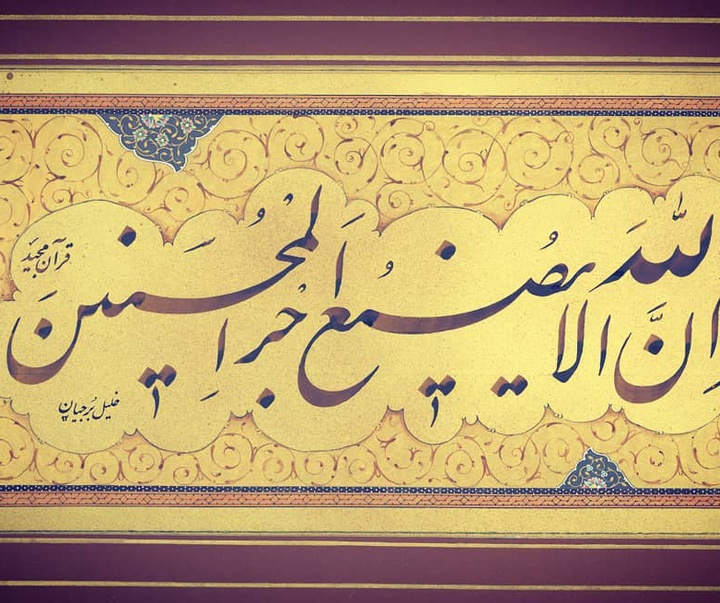 اِنَّ اللّهَ لا یُضیعُ اَجرَ المُحسِنینَ
قرآن مجید
خلیل بُرجیان